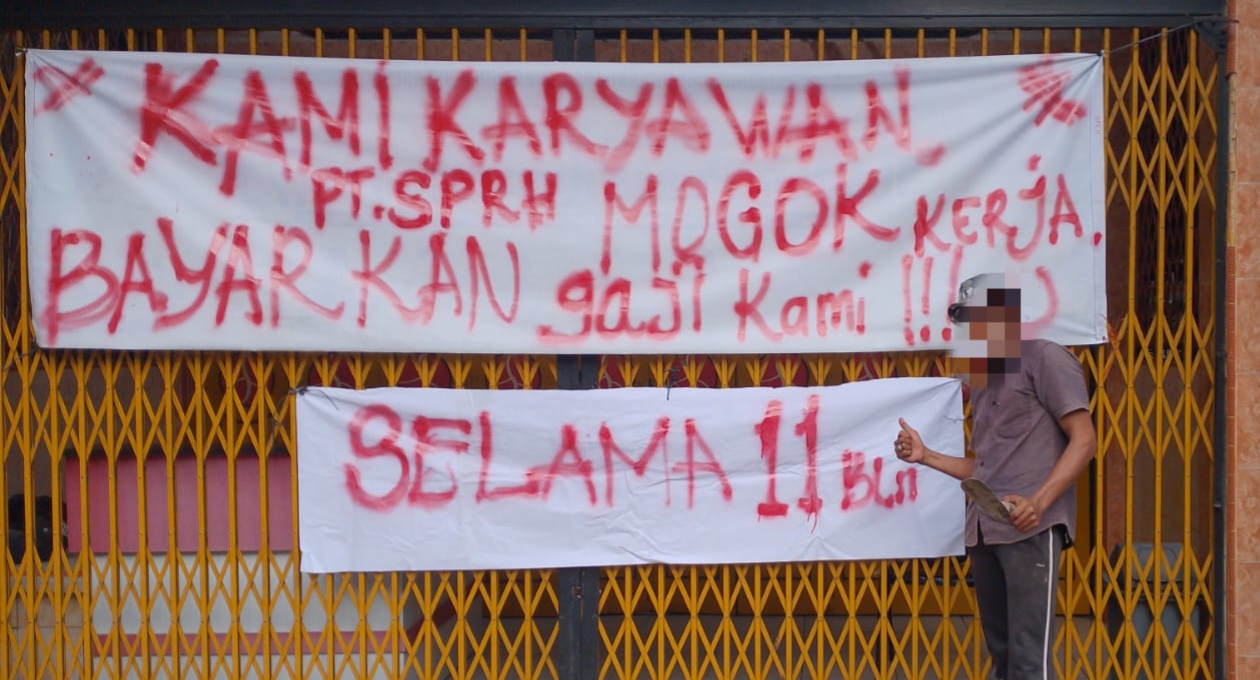 KAMI KARYAWAN
PT. SPRH MOGOK KERJA.
BAYARKAN gaji Kami !!!
SELAMA 11 Bln